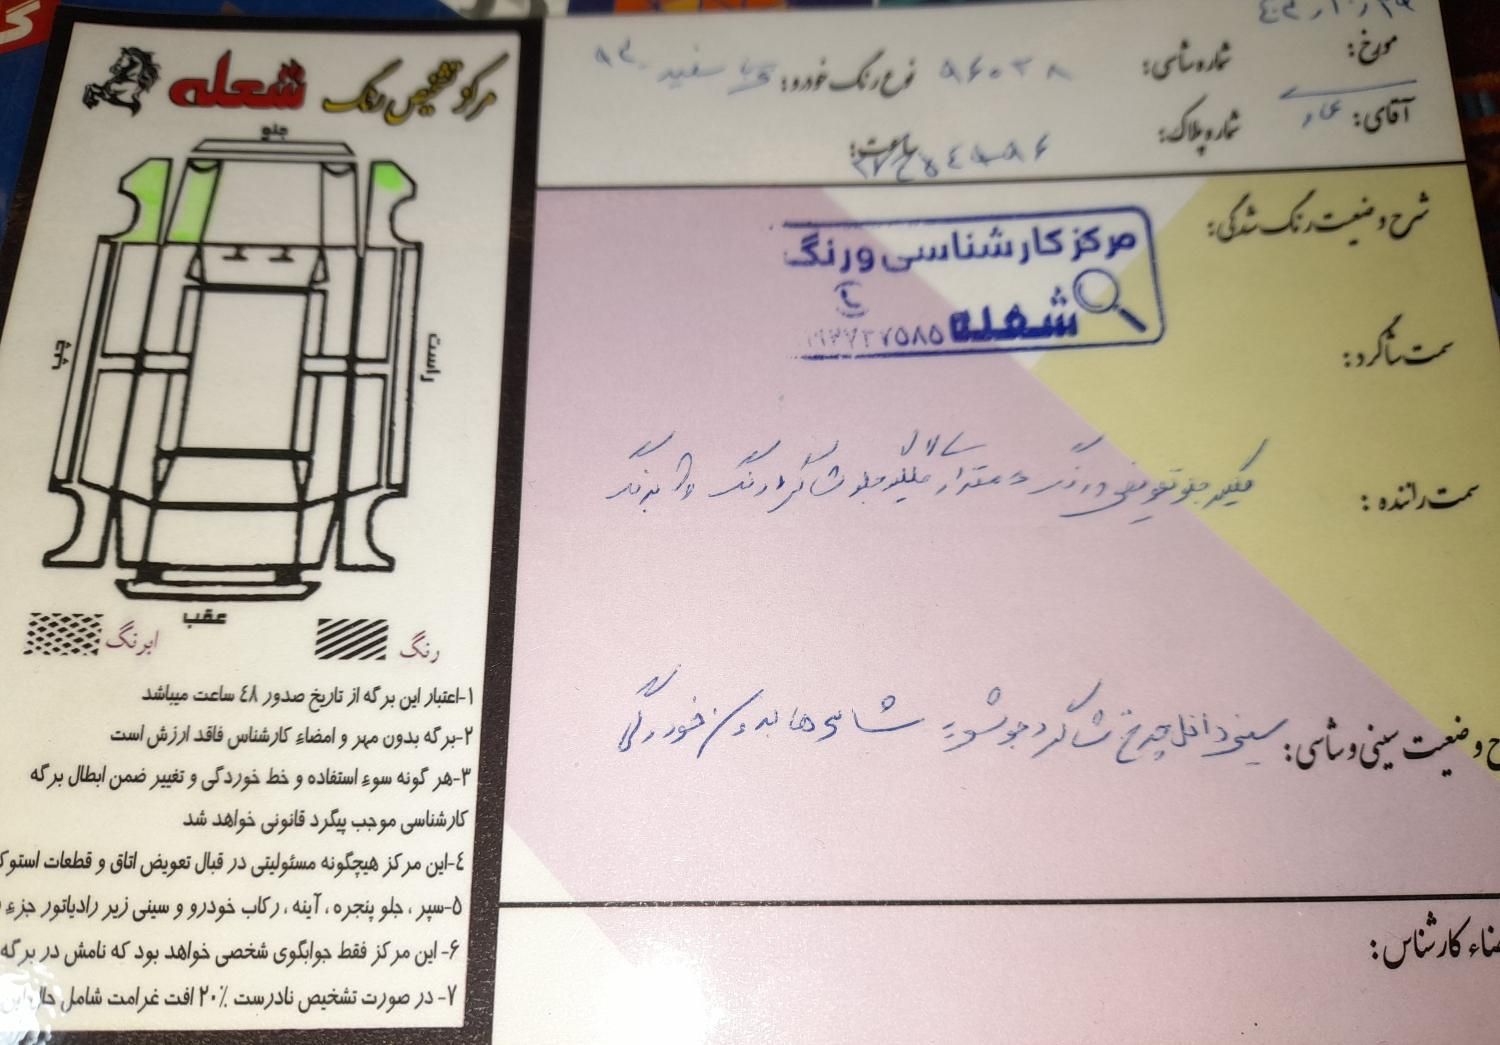 مرکز تشخیص رنگ شعله
جلو
چپ
راست
عقب
رنگ
ابرنگ
۱-اعتبار این برگه از تاریخ صدور ٤٨ ساعت میباشد
۲-برگه بدون مهر و امضاء کارشناس فاقد ارزش است
۳-هر گونه سوء استفاده و خط خوردگی و تغییر ضمن ابطال برگه
کارشناسی موجب پیگرد قانونی خواهد شد
٤-این مرکز هیچگونه مسئولیتی در قبال تعویض اتاق و قطعات استوک
۵-سپر ، جلو پنجره ، آینه ، رکاب خودرو و سینی زیر رادیاتور جزء
۶- این مرکز فقط جوابگوی شخصی خواهد بود که نامش در برگه
۷- در صورت تشخیص نادرست ۲۰٪ افت غرامت شامل حال این
مورخ:
شماره شاسی: ۸۶۰۳۸
نوع رنگ خودرو: سفید
آقای:
شماره پلاک:
ساعت:
شرح وضعیت رنگ شدگی:
مرکز کارشناسی و رنگ
شعله
سمت شاگرد:
سمت راننده: گلگیر جلو تعویض و رنگ و مقدار گلگیر جلو شاگرد رنگ
وضعیت سینی و شاسی: سینی داخل چرخ شاگرد جوشه شاسی ها بدون خوردگی
امضاء کارشناس: